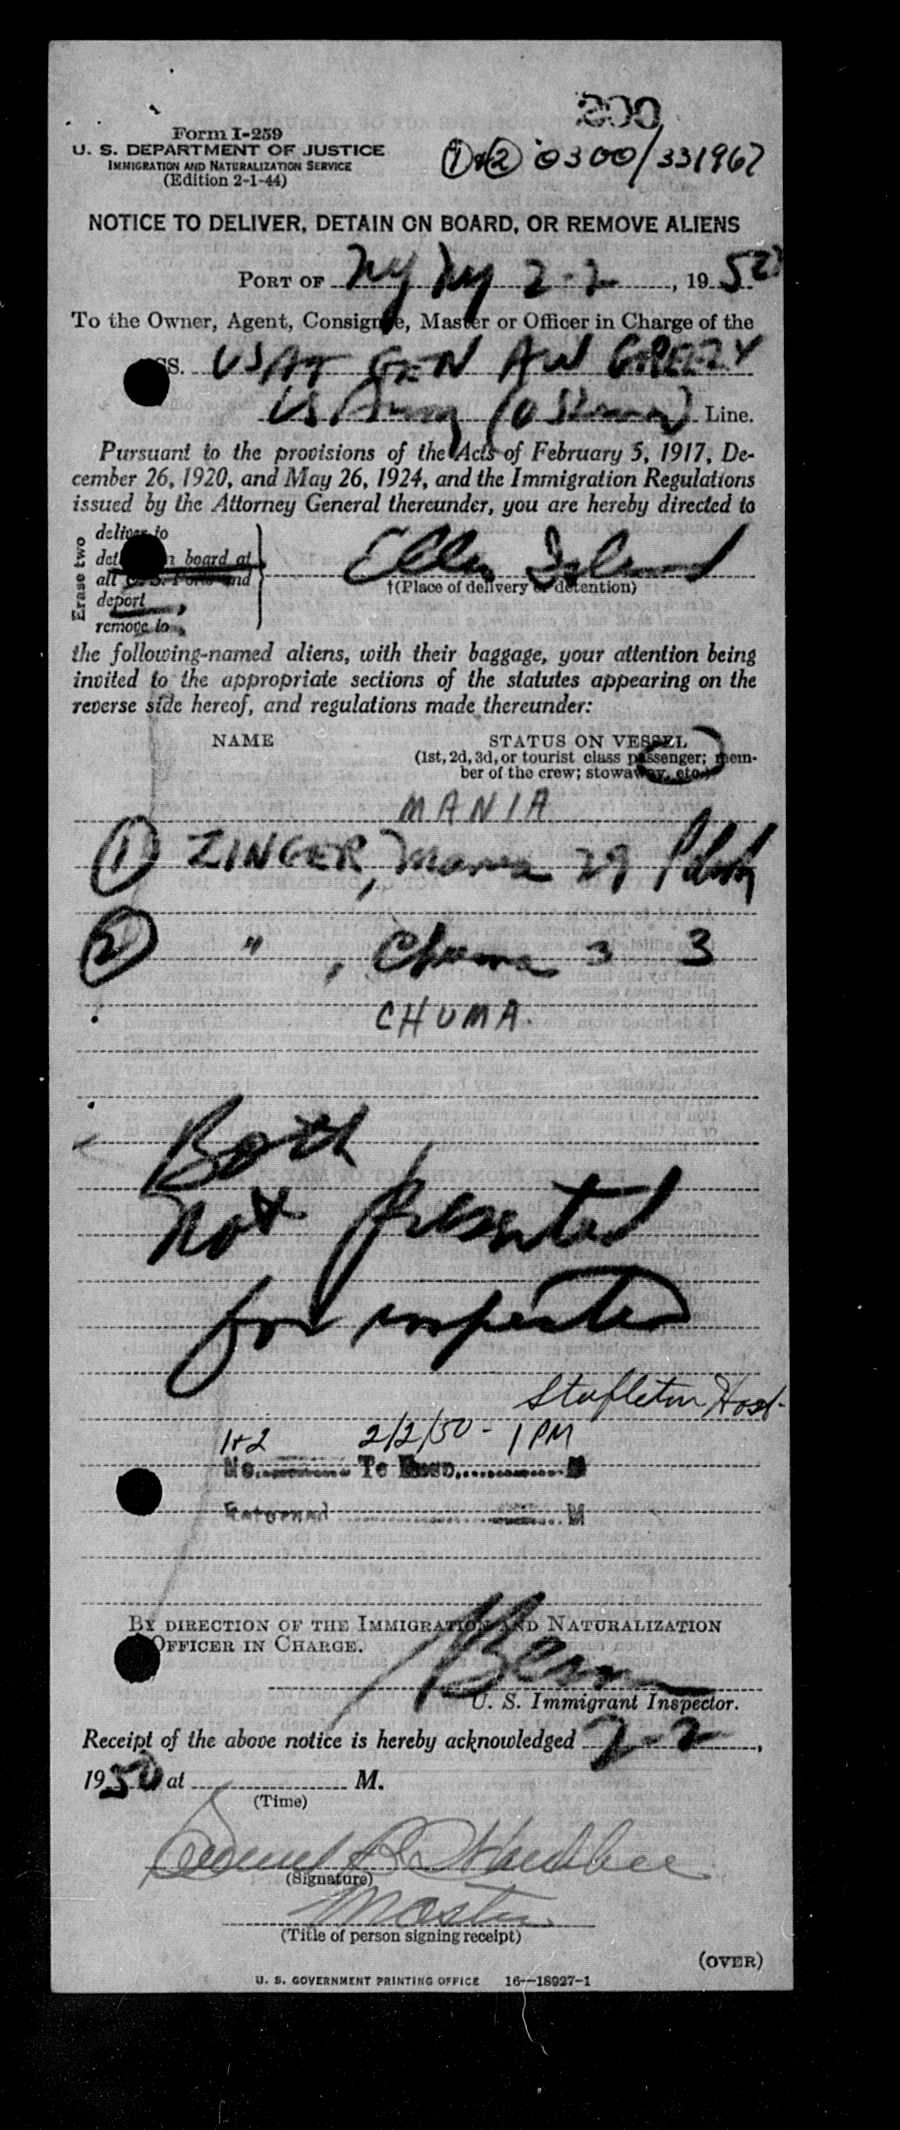 200
Form I-259
U. S. DEPARTMENT OF JUSTICE
IMMIGRATION AND NATURALIZATION SERVICE
(Edition 2-1-44)
① & ② 0300/331967
NOTICE TO DELIVER, DETAIN ON BOARD, OR REMOVE ALIENS
PORT OF NY NY 2-2, 1950
To the Owner, Agent, Consignee, Master or Officer in Charge of the
SS. USAT GEN AW GREELY
US Army Line.
Pursuant to the provisions of the Acts of February 5, 1917, De-
cember 26, 1920, and May 26, 1924, and the Immigration Regulations
issued by the Attorney General thereunder, you are hereby directed to
Erase two
deliver to
detain on board at
all U. S. Ports and
deport
remove to
Ellis Island
†(Place of delivery or detention)
the following-named aliens, with their baggage, your attention being
invited to the appropriate sections of the statutes appearing on the
reverse side hereof, and regulations made thereunder:
NAME STATUS ON VESSEL
(1st, 2d, 3d, or tourist class passenger; mem-
ber of the crew; stowaway, etc.)
MANIA
① ZINGER, Mania 29 Polish
② " , Chuma 3 3
CHUMA.
Both
not presented
for inspection
Stapleton Hosp.
1+2 2/2/50 - 1 PM
No. To Hosp. M
Returned M
BY DIRECTION OF THE IMMIGRATION AND NATURALIZATION
OFFICER IN CHARGE.
U. S. Immigrant Inspector.
Receipt of the above notice is hereby acknowledged 2-2,
1950 at M.
(Time)
(Signature)
Master
(Title of person signing receipt)
(OVER)
U. S. GOVERNMENT PRINTING OFFICE 16—18927-1